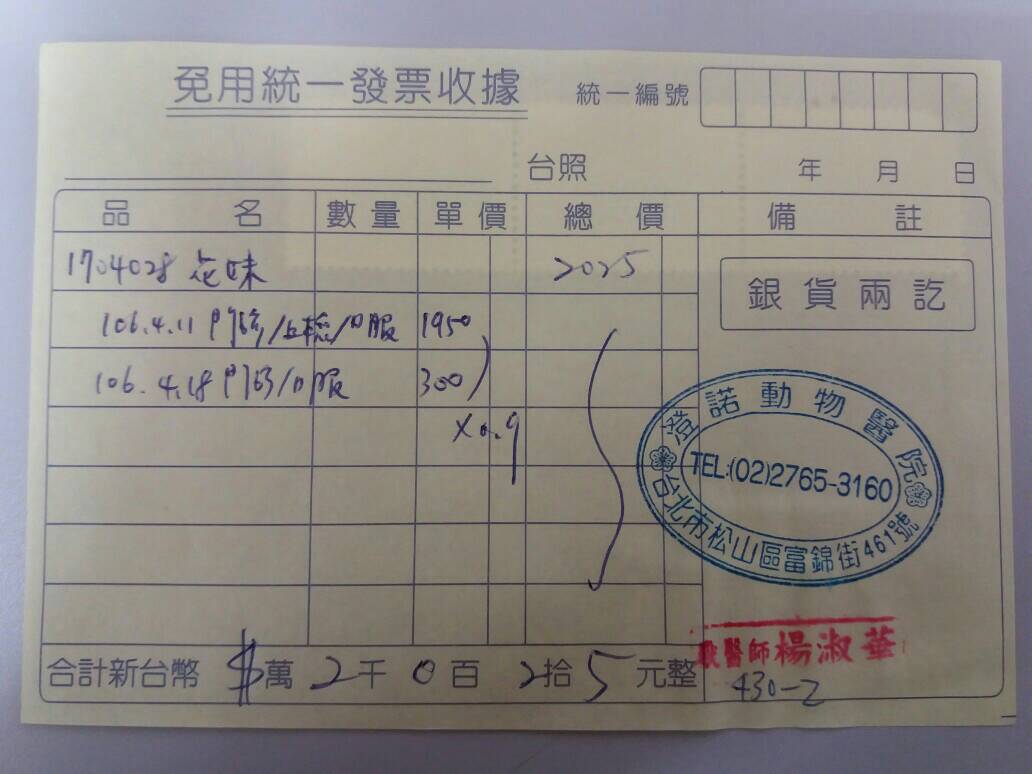 免用統一發票收據 統一編號
台照 年 月 日
品名 數量 單價 總價 備註
1704028 花味 2025
銀貨兩訖
106.4.11 門診/血檢/口服 1950
106.4.18 門診/口服 300
x0.9
澄諾動物醫院
TEL:(02)2765-3160
台北市松山區富錦街461號
獸醫師楊淑華
合計新台幣 $萬 2千 0百 2拾 5元整
430-2